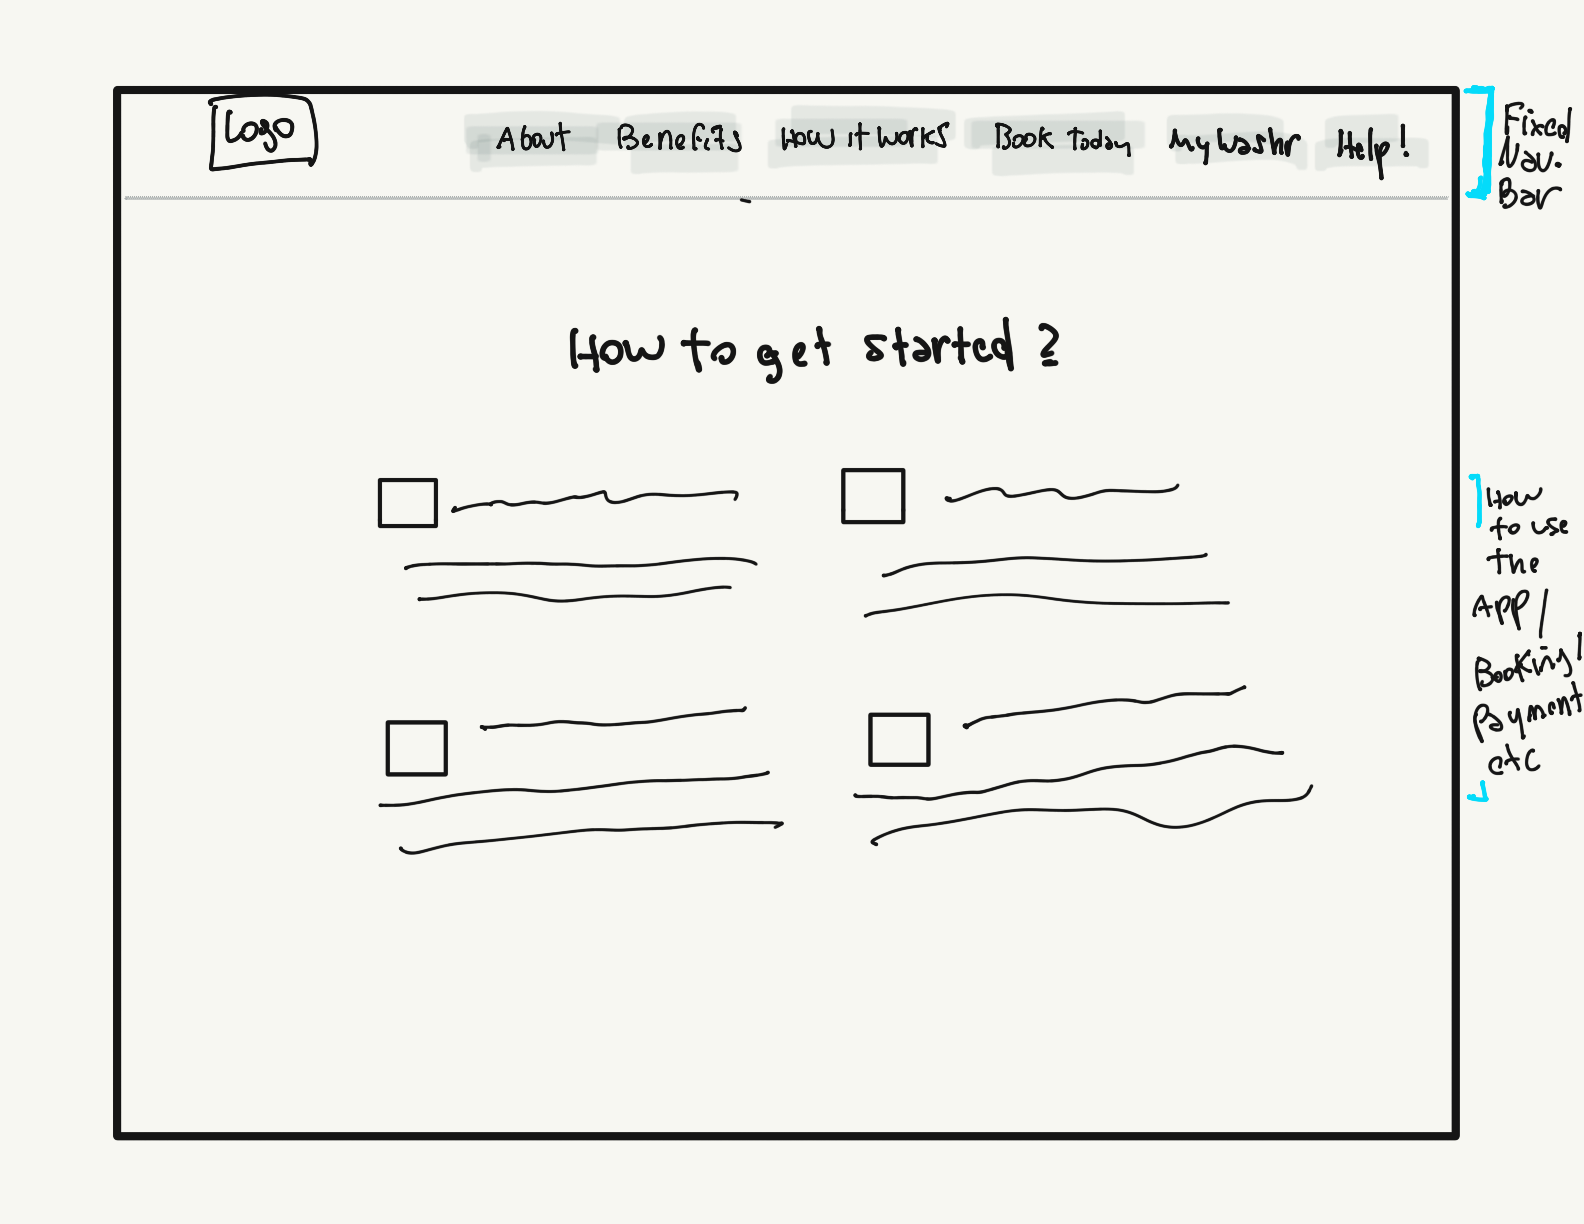 Logo
About Benefits How it works Book Today My Washr Help!
Fixed
Nav.
Bar
How to get started ?
How
to use
the
APP/
Booking/
Payment
etc